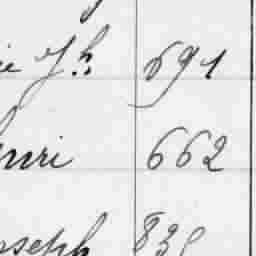 ie Jh. 691
enri 662
oseph 838